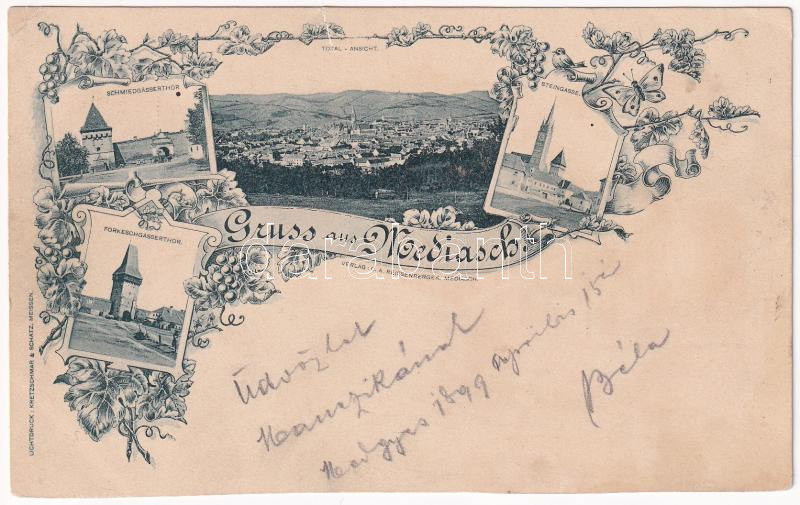 TOTAL - ANSICHT.
SCHMIEDGASSERTHOR
STEINGASSE.
FORKESCHGASSERTHOR.
Gruss aus Mediasch
VERLAG V. A. REISSENBERGER, MEDIASCH.
darabanth
Üdvözlet
Manczikának
Medgyes 1899 április 15én
Béla
LICHTDRUCK: KRETZSCHMAR & SCHATZ, MEISSEN.